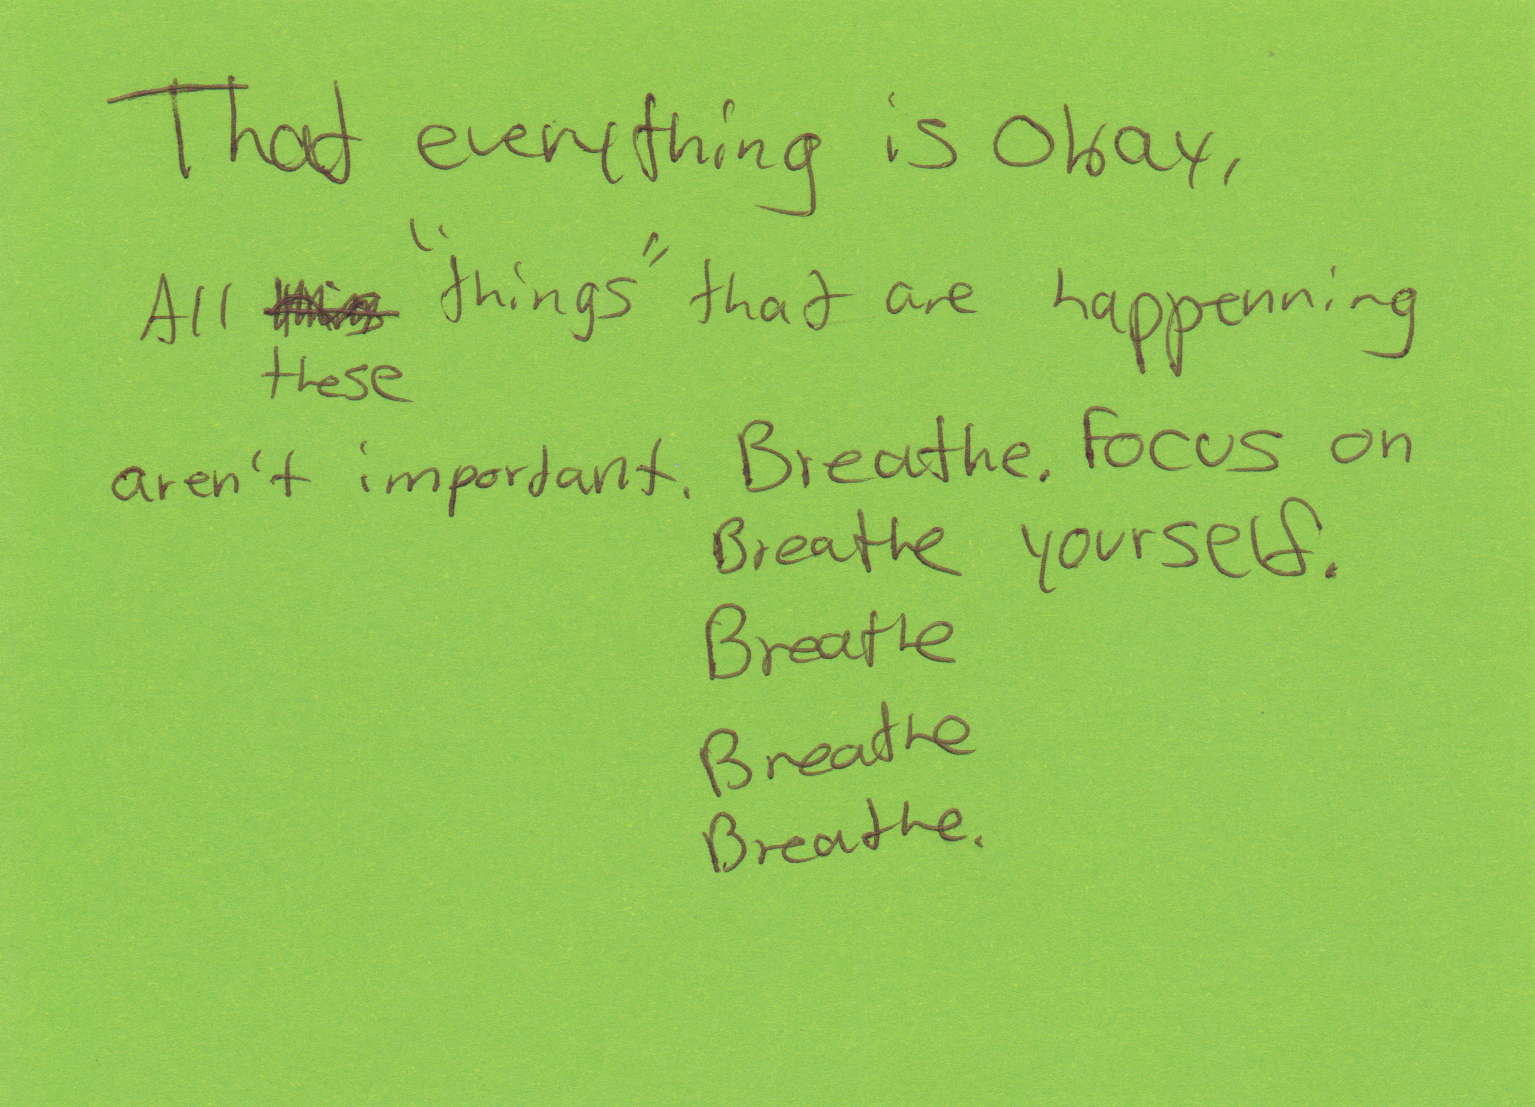 That everything is okay,
All these "things" that are happenning
aren't important. Breathe. Focus on
Breathe yourself.
Breathe
Breathe
Breathe.